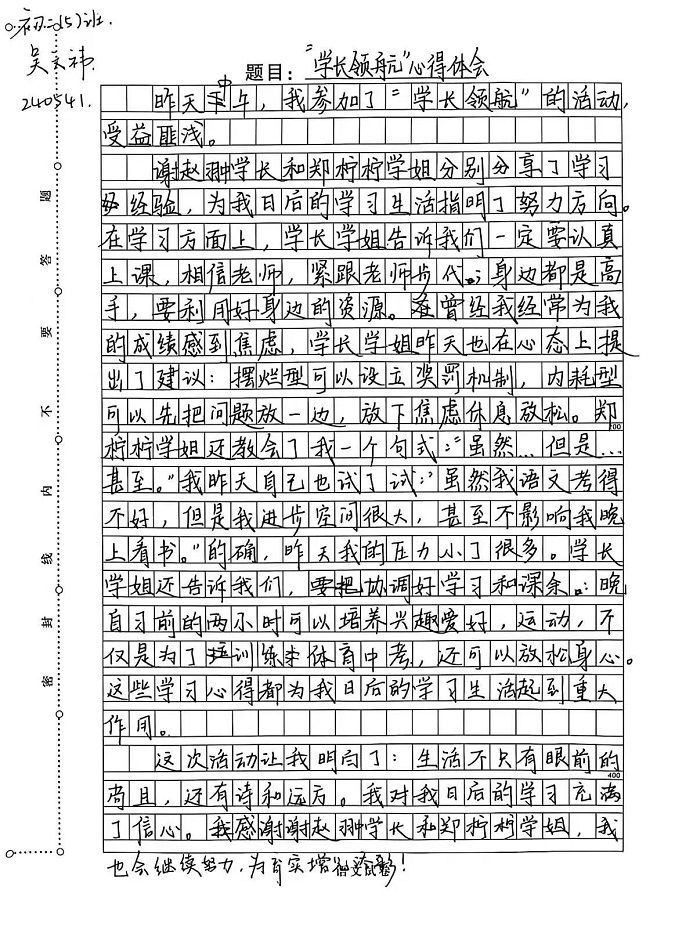 初二(5)班
吴文祎
240541.
题目："学长领航"心得体会
昨天中午，我参加了"学长领航"的活动，
受益匪浅。
谢赵翀学长和郑柠柠学姐分别分享了学习
经验，为我日后的学习生活指明了努力方向。
在学习方面上，学长学姐告诉我们一定要认真
上课，相信老师，紧跟老师步伐；身边都是高
手，要利用好身边的资源。曾经我经常为我
的成绩感到焦虑，学长学姐昨天也在心态上提
出了建议：摆烂型可以设立奖罚机制，内耗型
可以先把问题放一边，放下焦虑休息放松。郑
200
柠柠学姐还教会了我一个句式："虽然…但是…
甚至。"我昨天自己也试了试："虽然我语文考得
不好，但是我进步空间很大，甚至不影响我晚
上看书。"的确，昨天我的压力小了很多。学长
学姐还告诉我们，要把协调好学习和课余：晚
自习前的两小时可以培养兴趣爱好，运动，不
仅是为了训练体育中考，还可以放松身心。
这些学习心得都为我日后的学习生活起到重大
作用。
这次活动让我明白了：生活不只有眼前的
400
苟且，还有诗和远方。我对我日后的学习充满
了信心。我感谢谢赵翀学长和郑柠柠学姐，我
也会继续努力，为育实增
密封线内不要答题